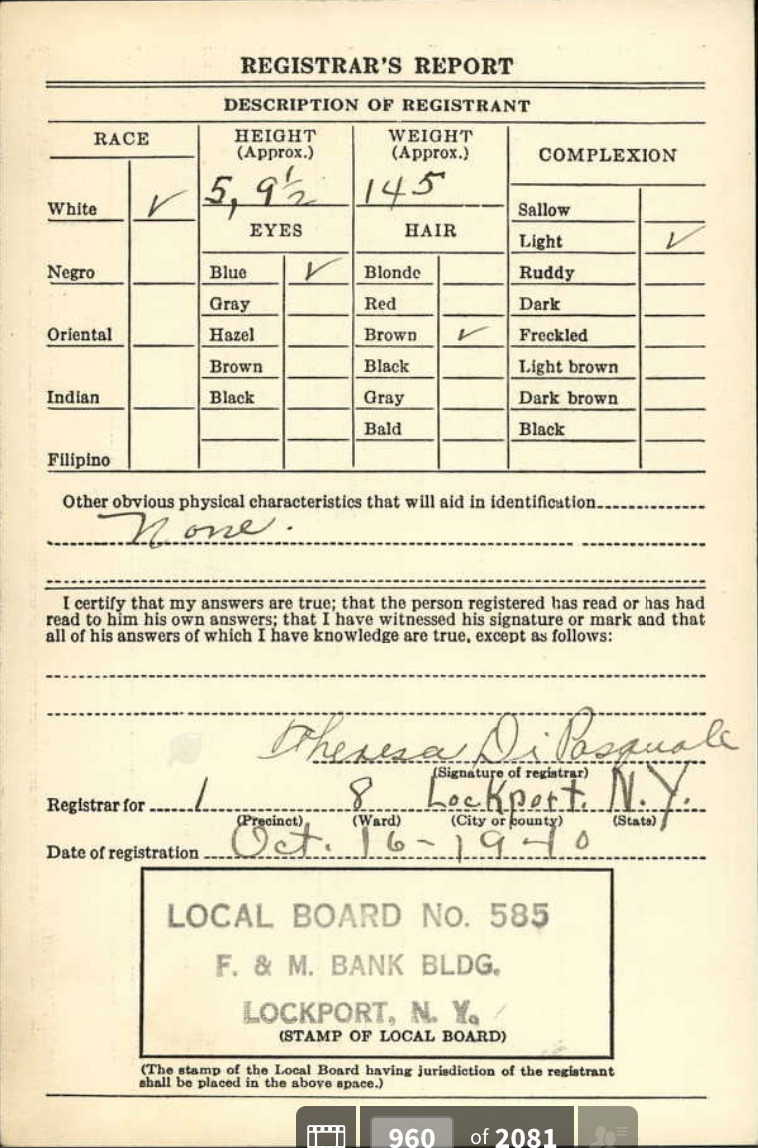 REGISTRAR'S REPORT
DESCRIPTION OF REGISTRANT
RACE
HEIGHT
(Approx.)
WEIGHT
(Approx.)
COMPLEXION
5, 9 1/2
145
White ✓
EYES
HAIR
Sallow
Light ✓
Negro
Blue ✓
Blonde
Ruddy
Gray
Red
Dark
Oriental
Hazel
Brown ✓
Freckled
Brown
Black
Light brown
Indian
Black
Gray
Dark brown
Bald
Black
Filipino
Other obvious physical characteristics that will aid in identification
None.
I certify that my answers are true; that the person registered has read or has had
read to him his own answers; that I have witnessed his signature or mark and that
all of his answers of which I have knowledge are true, except as follows:
Theresa Di Pasquale
(Signature of registrar)
Registrar for 1 8 Lockport, N.Y.
(Precinct) (Ward) (City or county) (State)
Date of registration Oct. 16-1940
LOCAL BOARD No. 585
F. & M. BANK BLDG.
LOCKPORT, N. Y.
(STAMP OF LOCAL BOARD)
(The stamp of the Local Board having jurisdiction of the registrant
shall be placed in the above space.)
960 of 2081